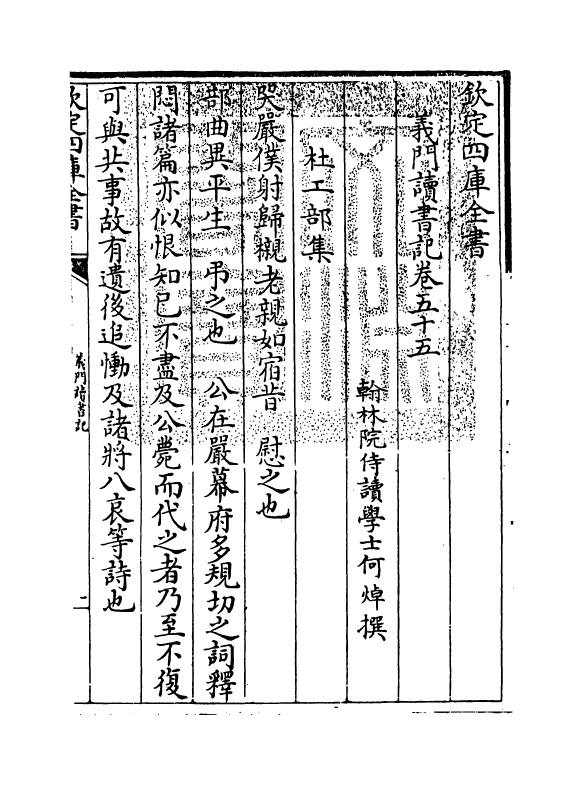 欽定四庫全書
義門讀書記卷五十五
翰林院侍讀學士何焯撰
杜工部集
哭嚴僕射歸櫬老親如宿昔 慰之也
部曲異平生 弔之也 公在嚴幕府多規切之詞釋
悶諸篇亦似恨知己不盡及公薨而代之者乃至不復
可與共事故有遺後追慟及諸將八哀等詩也
欽定四庫全書
義門讀書記